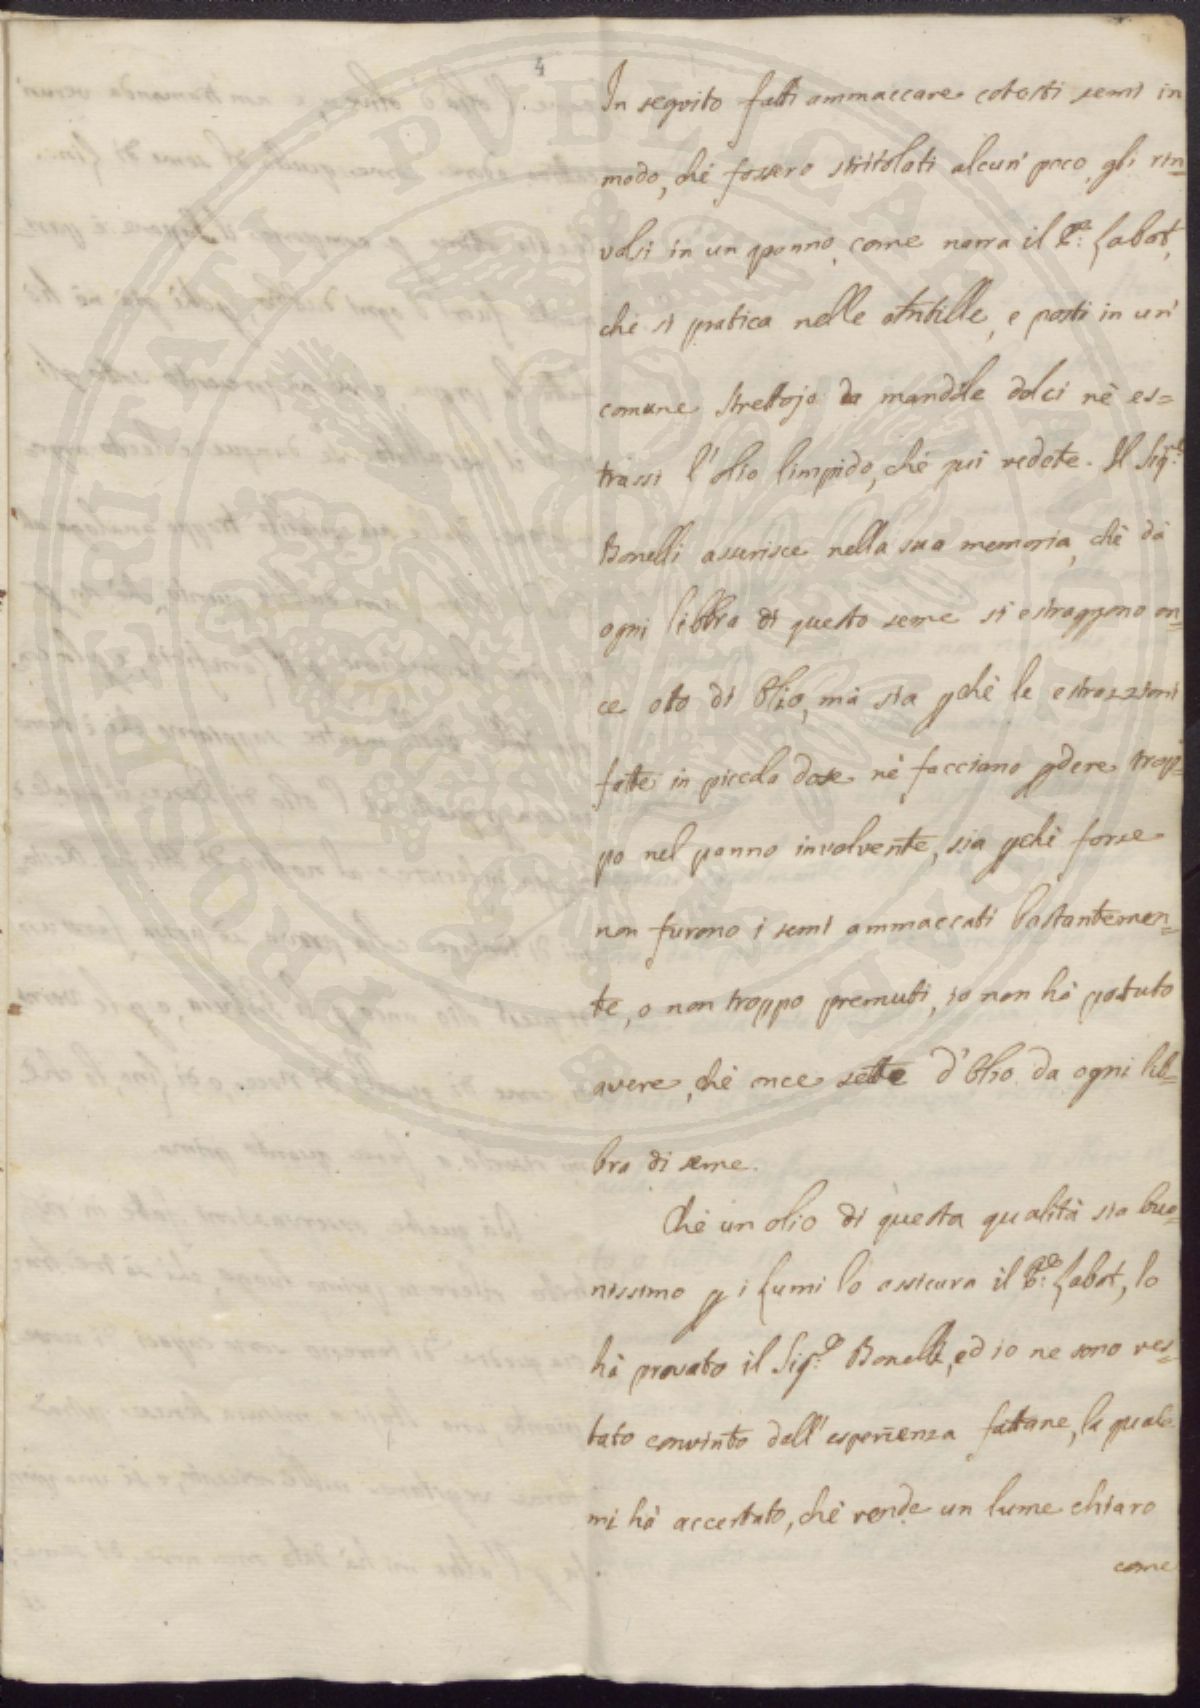 4
In seguito fatti ammaccare cotesti semi in
modo, chè fossero stritolati alcun' poco, gli rin=
volsi in un panno, come narra il P.e Labat,
chè si pratica nelle Antille, e posti in un'
comune strettojo da mandole dolci nè es=
trassi l'olio limpido, chè quì vedete. Il Sig.re
Bonelli asserisce nella sua memoria, chè dà
ogni libbra di questo seme si estraggono on=
ce otto di Olio, mà sia pchè le estrazzioni
fatte in piccola dose nè facciano pdere trop=
po nel panno involvente, sia pchè forse
non furono i semi ammaccati bastantemen=
te, o non troppo premuti, io non hò potuto
avere, chè once sette d'Olio da ogni lib=
bra di seme.
Chè un olio di questa qualità sia buo=
nissimo p i Lumi lo assicura il P.e Labat, lo
hà provato il Sig.re Bonelli, ed io ne sono res=
tato convinto dall'esperienza fattane, la quale
mi hà accertato, chè rende un lume chiaro
come
PROSPERITATI PVBLICAE AVGENDAE